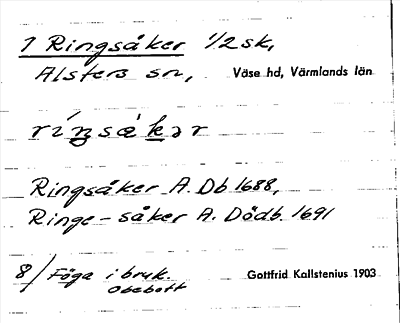 1 Ringsåker 1/2 sk,
Alsters sn, Väse hd, Värmlands län
ríŋsàkər
Ringsåker A. Db 1688,
Ringe-såker A. Dödb. 1691
8/ Föga i bruk. Gottfrid Kallstenius 1903
Obebott